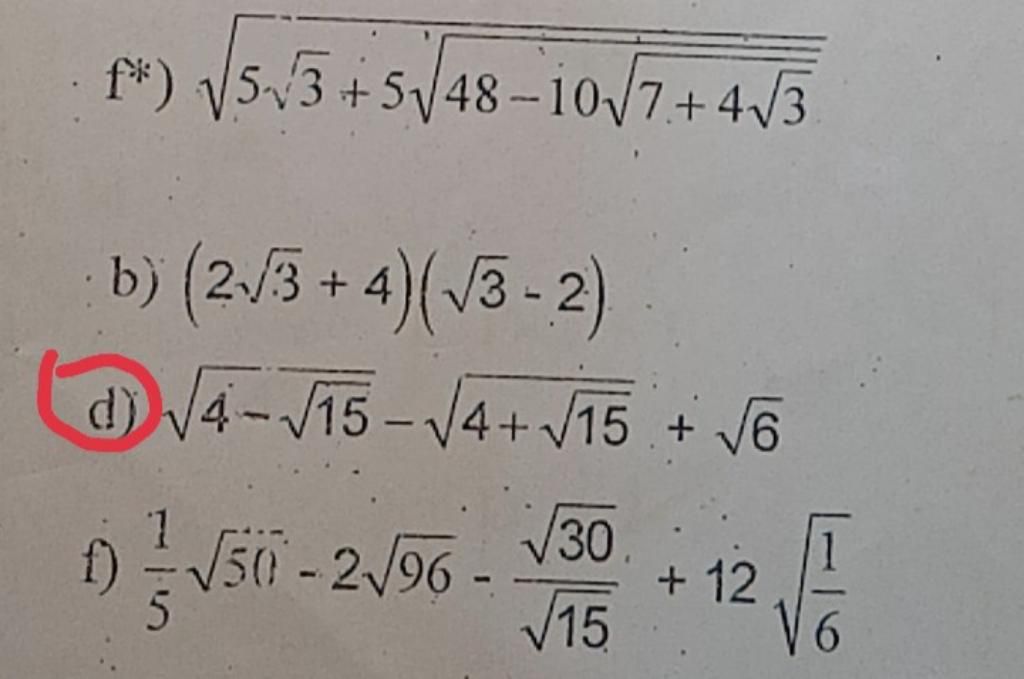 f*) √(5√3 + 5√(48 − 10√(7 + 4√3)))
b) (2√3 + 4)(√3 - 2)
d) √(4 − √15) − √(4 + √15) + √6
f) 1/5 √50 - 2√96 - √30/√15 + 12 √(1/6)